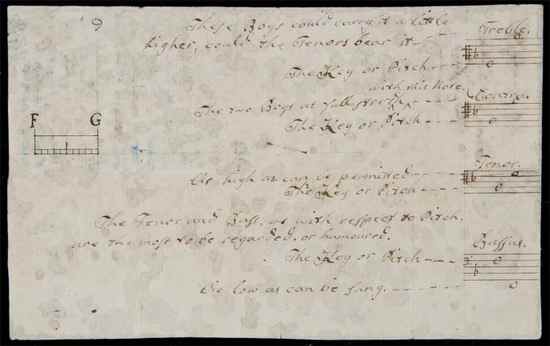 9
These Boys could carry it a little
higher, could the Tenors bear it
Treble.
The Key or Pitch
with this Note
The two Boys at full stretch
Contra.
The Key or Pitch
F G
As high as can be permitted
Tenor.
The Key or Pitch
The Tenor and Bass, as with respect to Pitch,
are the most to be regarded, or humoured.
Bassus.
The Key or Pitch
As low as can be sung.